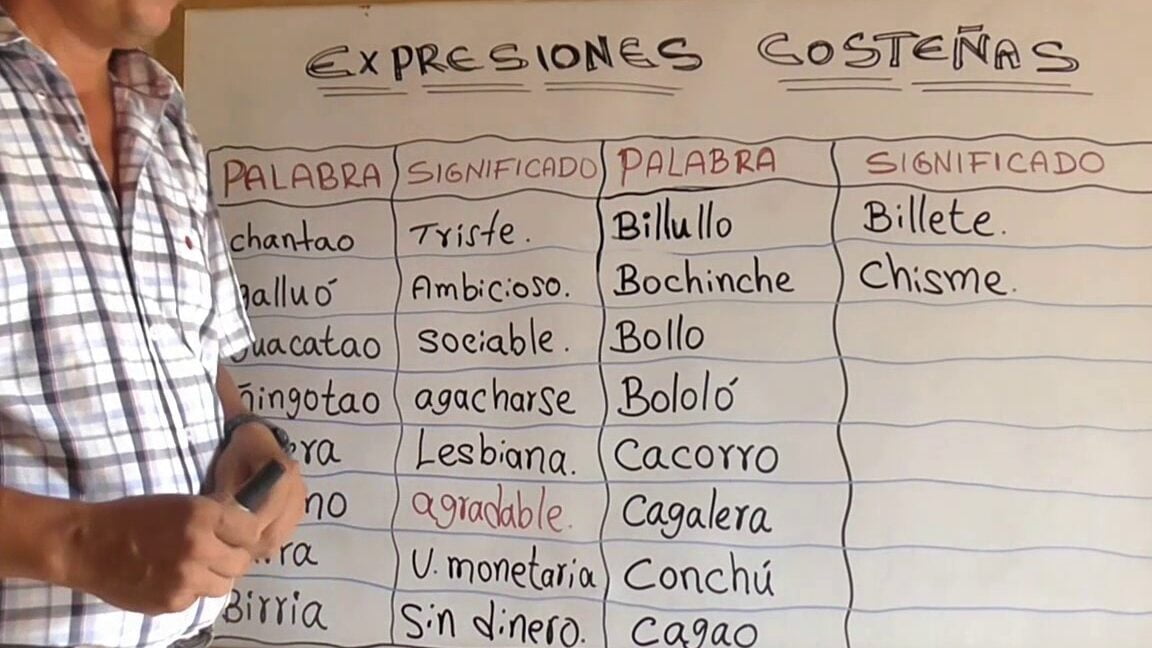 EXPRESIONES COSTEÑAS
PALABRA SIGNIFICADO PALABRA SIGNIFICADO
chantao Triste. Billullo Billete.
Ambicioso. Bochinche Chisme.
sociable. Bollo
agacharse Bololó
Lesbiana. Cacorro
agradable. Cagalera
U. monetaria Conchú
Birria Sin dinero. cagao